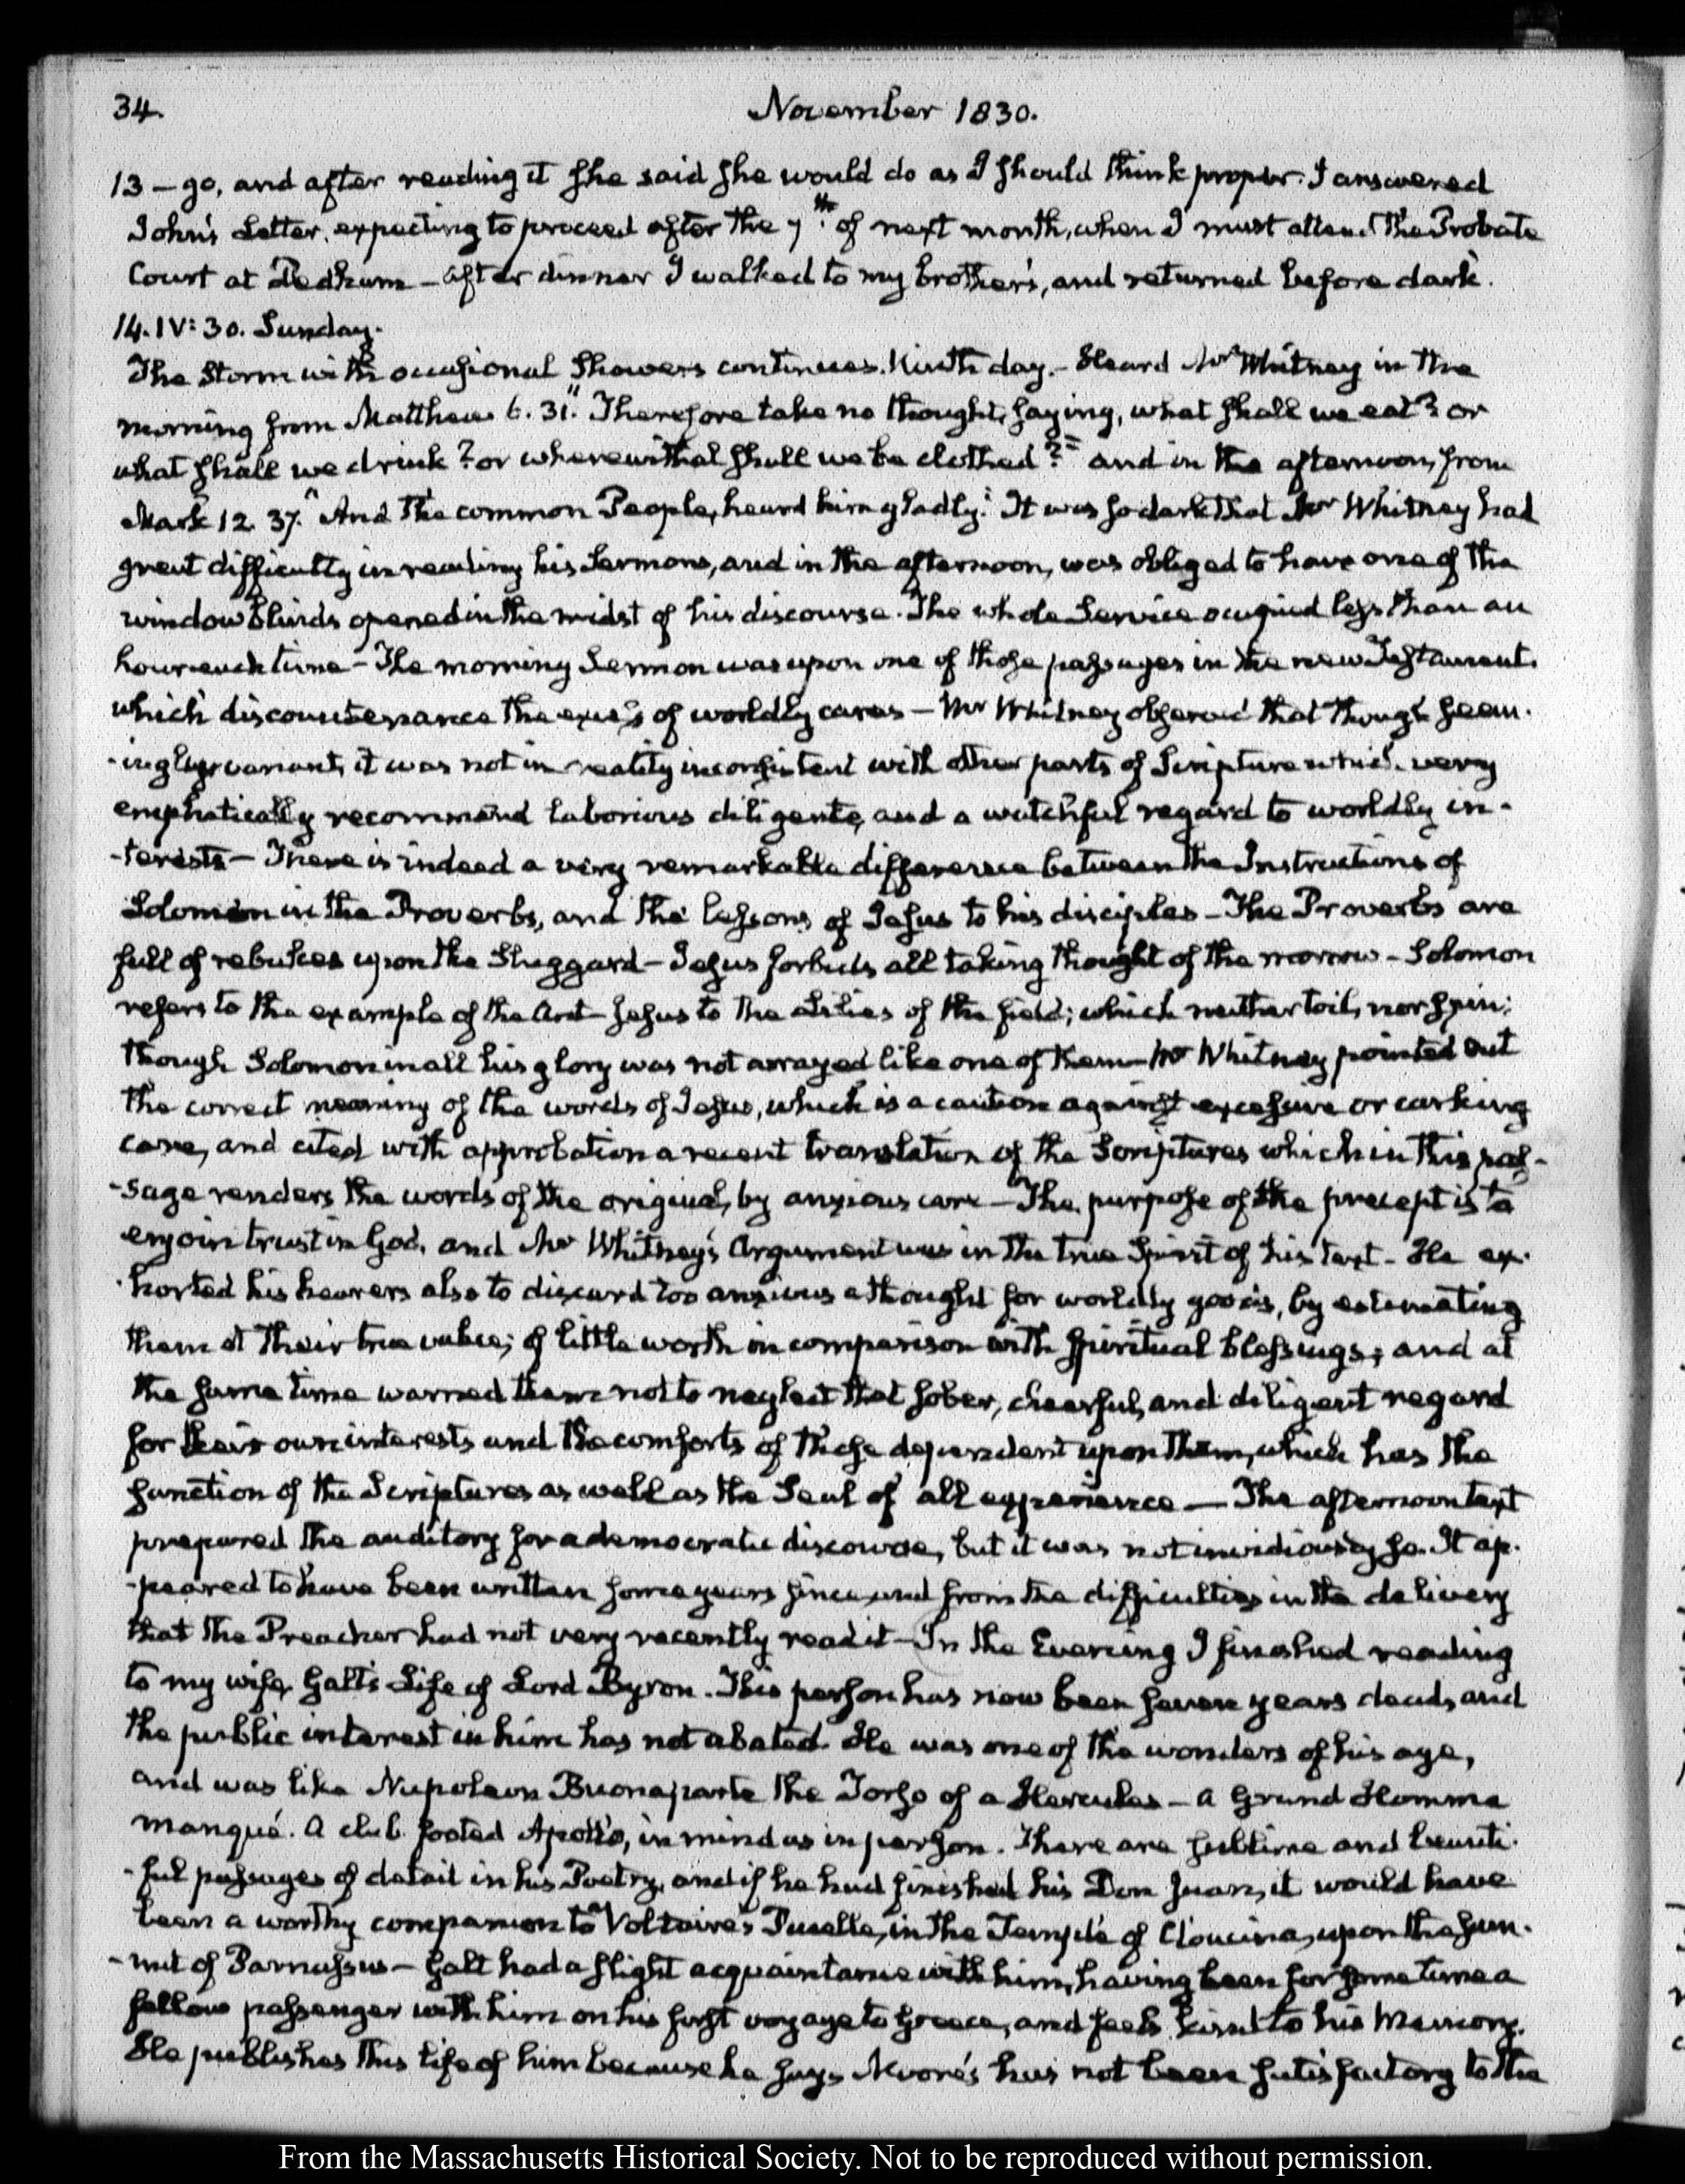 34.
November 1830.
13 — go, and after reading it she said she would do as I should think proper. I answered
John's Letter, expecting to proceed after the 7th of next month, when I must attend the Probate
Court at Dedham — After dinner I walked to my brother's, and returned before dark.
14. IV: 30. Sunday.
The Storm with occasional Showers continues. Ninth day. — Heard Mr Whitney in the
morning from Matthew 6. 31. "Therefore take no thought, saying, what shall we eat? or
what shall we drink? or wherewithal shall we be clothed?" and in the afternoon, from
Mark 12. 37. "And the common People, heard him gladly." It was so dark that Mr Whitney had
great difficulty in reading his Sermons, and in the afternoon, was obliged to have one of the
window blinds opened in the midst of his discourse. The whole Service occupied less than an
hour each time — The morning Sermon was upon one of those passages in the new Testament.
which discountenance the excess of worldly cares — Mr Whitney observed that though seem-
-ingly variant, it was not in reality inconsistent with other parts of Scripture which very
emphatically recommend laborious diligence, and a watchful regard to worldly in-
-terests — There is indeed a very remarkable difference between the Instructions of
Solomon in the Proverbs, and the lessons of Jesus to his disciples — The Proverbs are
full of rebukes upon the Sluggard — Jesus forbids all taking thought of the morrow — Solomon
refers to the example of the Ant — Jesus to the Lilies of the field; which neither toil, nor spin;
though Solomon in all his glory was not arrayed like one of them — Mr Whitney pointed out
the correct meaning of the words of Jesus, which is a caution against excessive or carking
care, and cited with approbation a recent translation of the Scriptures which in this pas-
-sage renders the words of the original, by anxious care — The purpose of the precept is to
enjoin trust in God, and Mr Whitney's Argument was in the true Spirit of his text — He ex-
-horted his hearers also to discard too anxious a thought for worldly goods, by estimating
them at their true value; of little worth in comparison with spiritual blessings; and at
the same time warned them not to neglect that sober, cheerful, and diligent regard
for their own interests and the comforts of those dependent upon them, which has the
sanction of the Scriptures as well as the Seal of all experience — The afternoon text
prepared the auditory for a democratic discourse, but it was not invidiously so. It ap-
-peared to have been written some years since, and from the difficulties in the delivery
that the Preacher had not very recently read it — In the Evening I finished reading
to my wife Galt's Life of Lord Byron. This person has now been seven years dead, and
the public interest in him has not abated. He was one of the wonders of his age,
and was like Napoleon Buonaparte the Torso of a Hercules — a Grand Homme
manqué. A club footed Apollo, in mind as in person. There are sublime and beauti-
-ful passages of detail in his Poetry, and if he had finished his Don Juan, it would have
been a worthy companion to Voltaire's Pucelle, in the Temple of Cloacina, upon the sum-
-mit of Parnassus — Galt had a slight acquaintance with him, having been for some time a
fellow passenger with him on his first voyage to Greece, and feels kind to his Memory.
He publishes this life of him because he says Moore's has not been satisfactory to the
From the Massachusetts Historical Society. Not to be reproduced without permission.